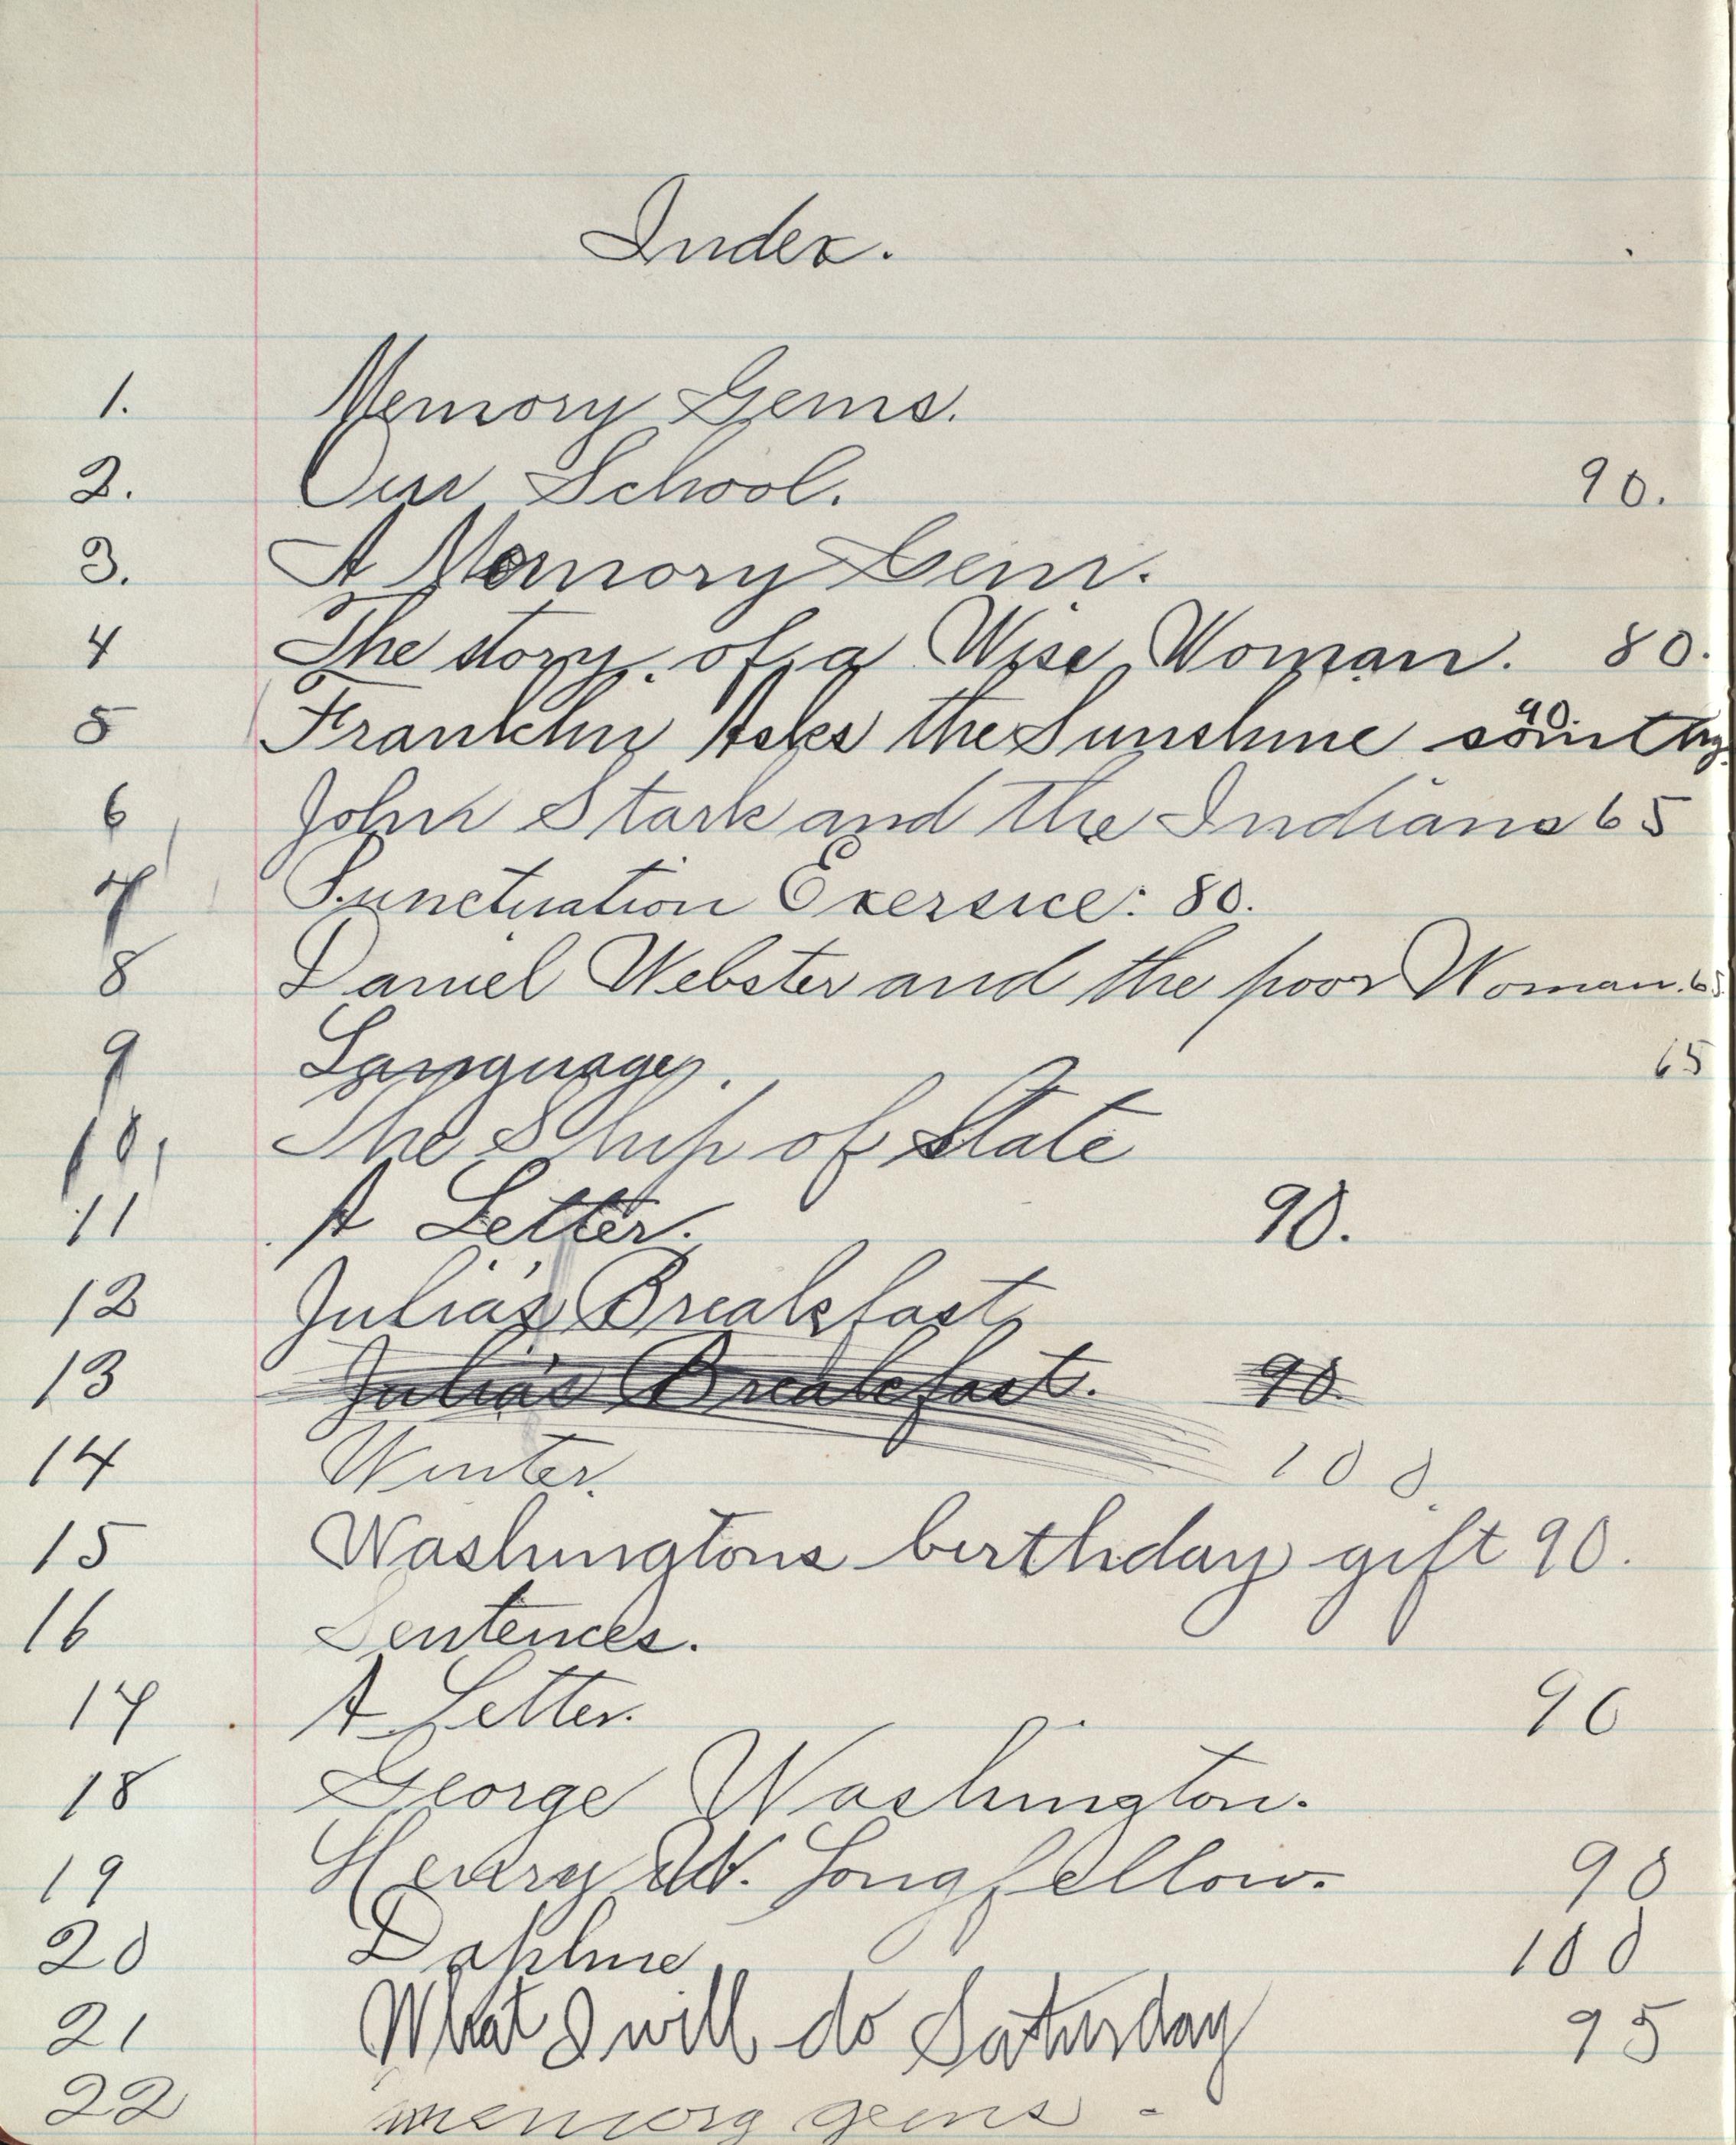 Index.
1. Memory Gems.
2. Our School. 90.
3. A Memory Gem.
4 The story of a Wise Woman. 80.
5 Franklin Asks the Sunshine 90.
6 John Stark and the Indians 65
7 Punctuation Exersice. 80.
8 Daniel Webster and the poor Woman.
9 Language. 65
10, The Ship of State
11 A Letter. 90.
12 Julia's Breakfast
13 Julia's Breakfast. 90.
14 Winter. 100
15 Washingtons birthday gift 90.
16 Sentences.
17 A Letter. 90
18 George Washington.
19 Henry W. Longfellow. 90
20 Daphne 100
21 What I will do Saturday 95
22 memory gems -